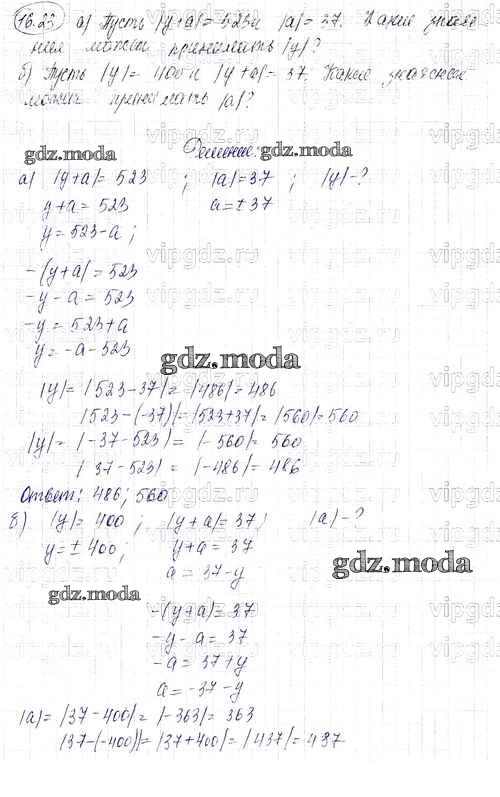 16.23 а) Пусть |y+a|= 523 и |a|= 37. Какие значе
ния может принимать |y|?
б) Пусть |y|= 400 и |y+a|= 37. Какие значения
может принимать |a|?
Решение:
gdz.moda
gdz.moda
а) |y+a|= 523 ; |a|=37 ; |y|-?
y+a= 523 a=±37
y= 523-a;
-(y+a)= 523
-y-a= 523
-y= 523+a
y= -a-523
gdz.moda
|y|= |523-37|= |486|= 486
|523-(-37)|= |523+37|= |560|= 560
|y|= |-37-523|= |-560|= 560
|37-523|= |-486|= 486
Ответ: 486; 560
б) |y|= 400 ; |y+a|= 37; |a|-?
y=±400; y+a= 37
a= 37-y
gdz.moda
gdz.moda
-(y+a)= 37
-y-a= 37
-a= 37+y
a= -37-y
|a|= |37-400|= |-363|= 363
|37-(-400)|= |37+400|= |437|= 437